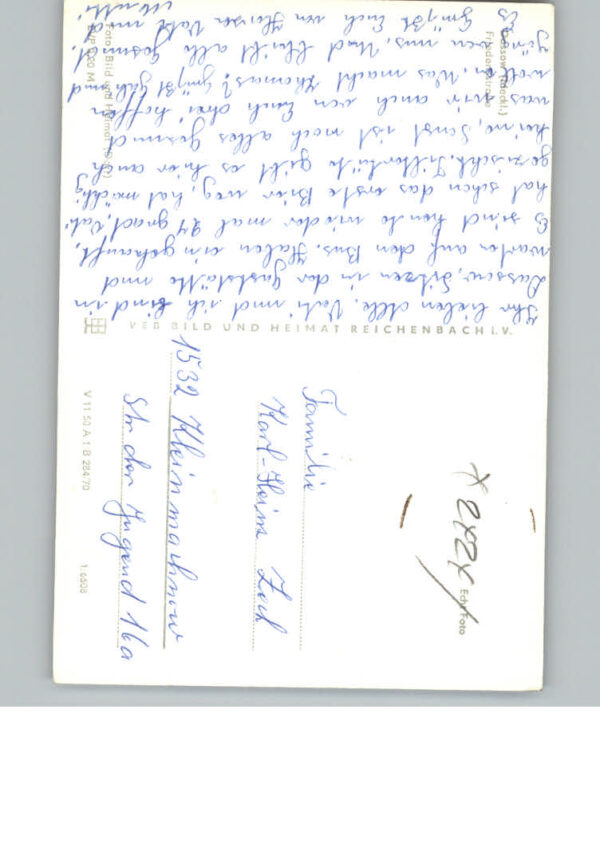 Dassow (Meckl.)
Friedensstraße
Ihr lieben alle. Vati und ich sind in
Dassow, sitzen in der Gaststätte und
warten auf den Bus. Haben eingekauft,
Es sind heute wieder mal 24 grad, Vati
hat schon das erste Bier weg, hat mächtig
gezischt. Filtertüte gibt es hier auch
keine, Sonst ist noch alles gesund
was wir auch von Euch drei hoffen
wollen. Was macht Thomas? grüßt Gabi und
Jürgen von uns. Und bleibt alle gesund.
Es grüßt Euch von Herzen Vati und
Mutti.
Foto: Bild und Heimat
M
VEB BILD UND HEIMAT REICHENBACH I. V.
Echt Foto
X 2X2X
Familie
Karl-Heinz
1532 Kleinmachnow
Str der Jugend 16a
V 11 50 A 1 B 284/70